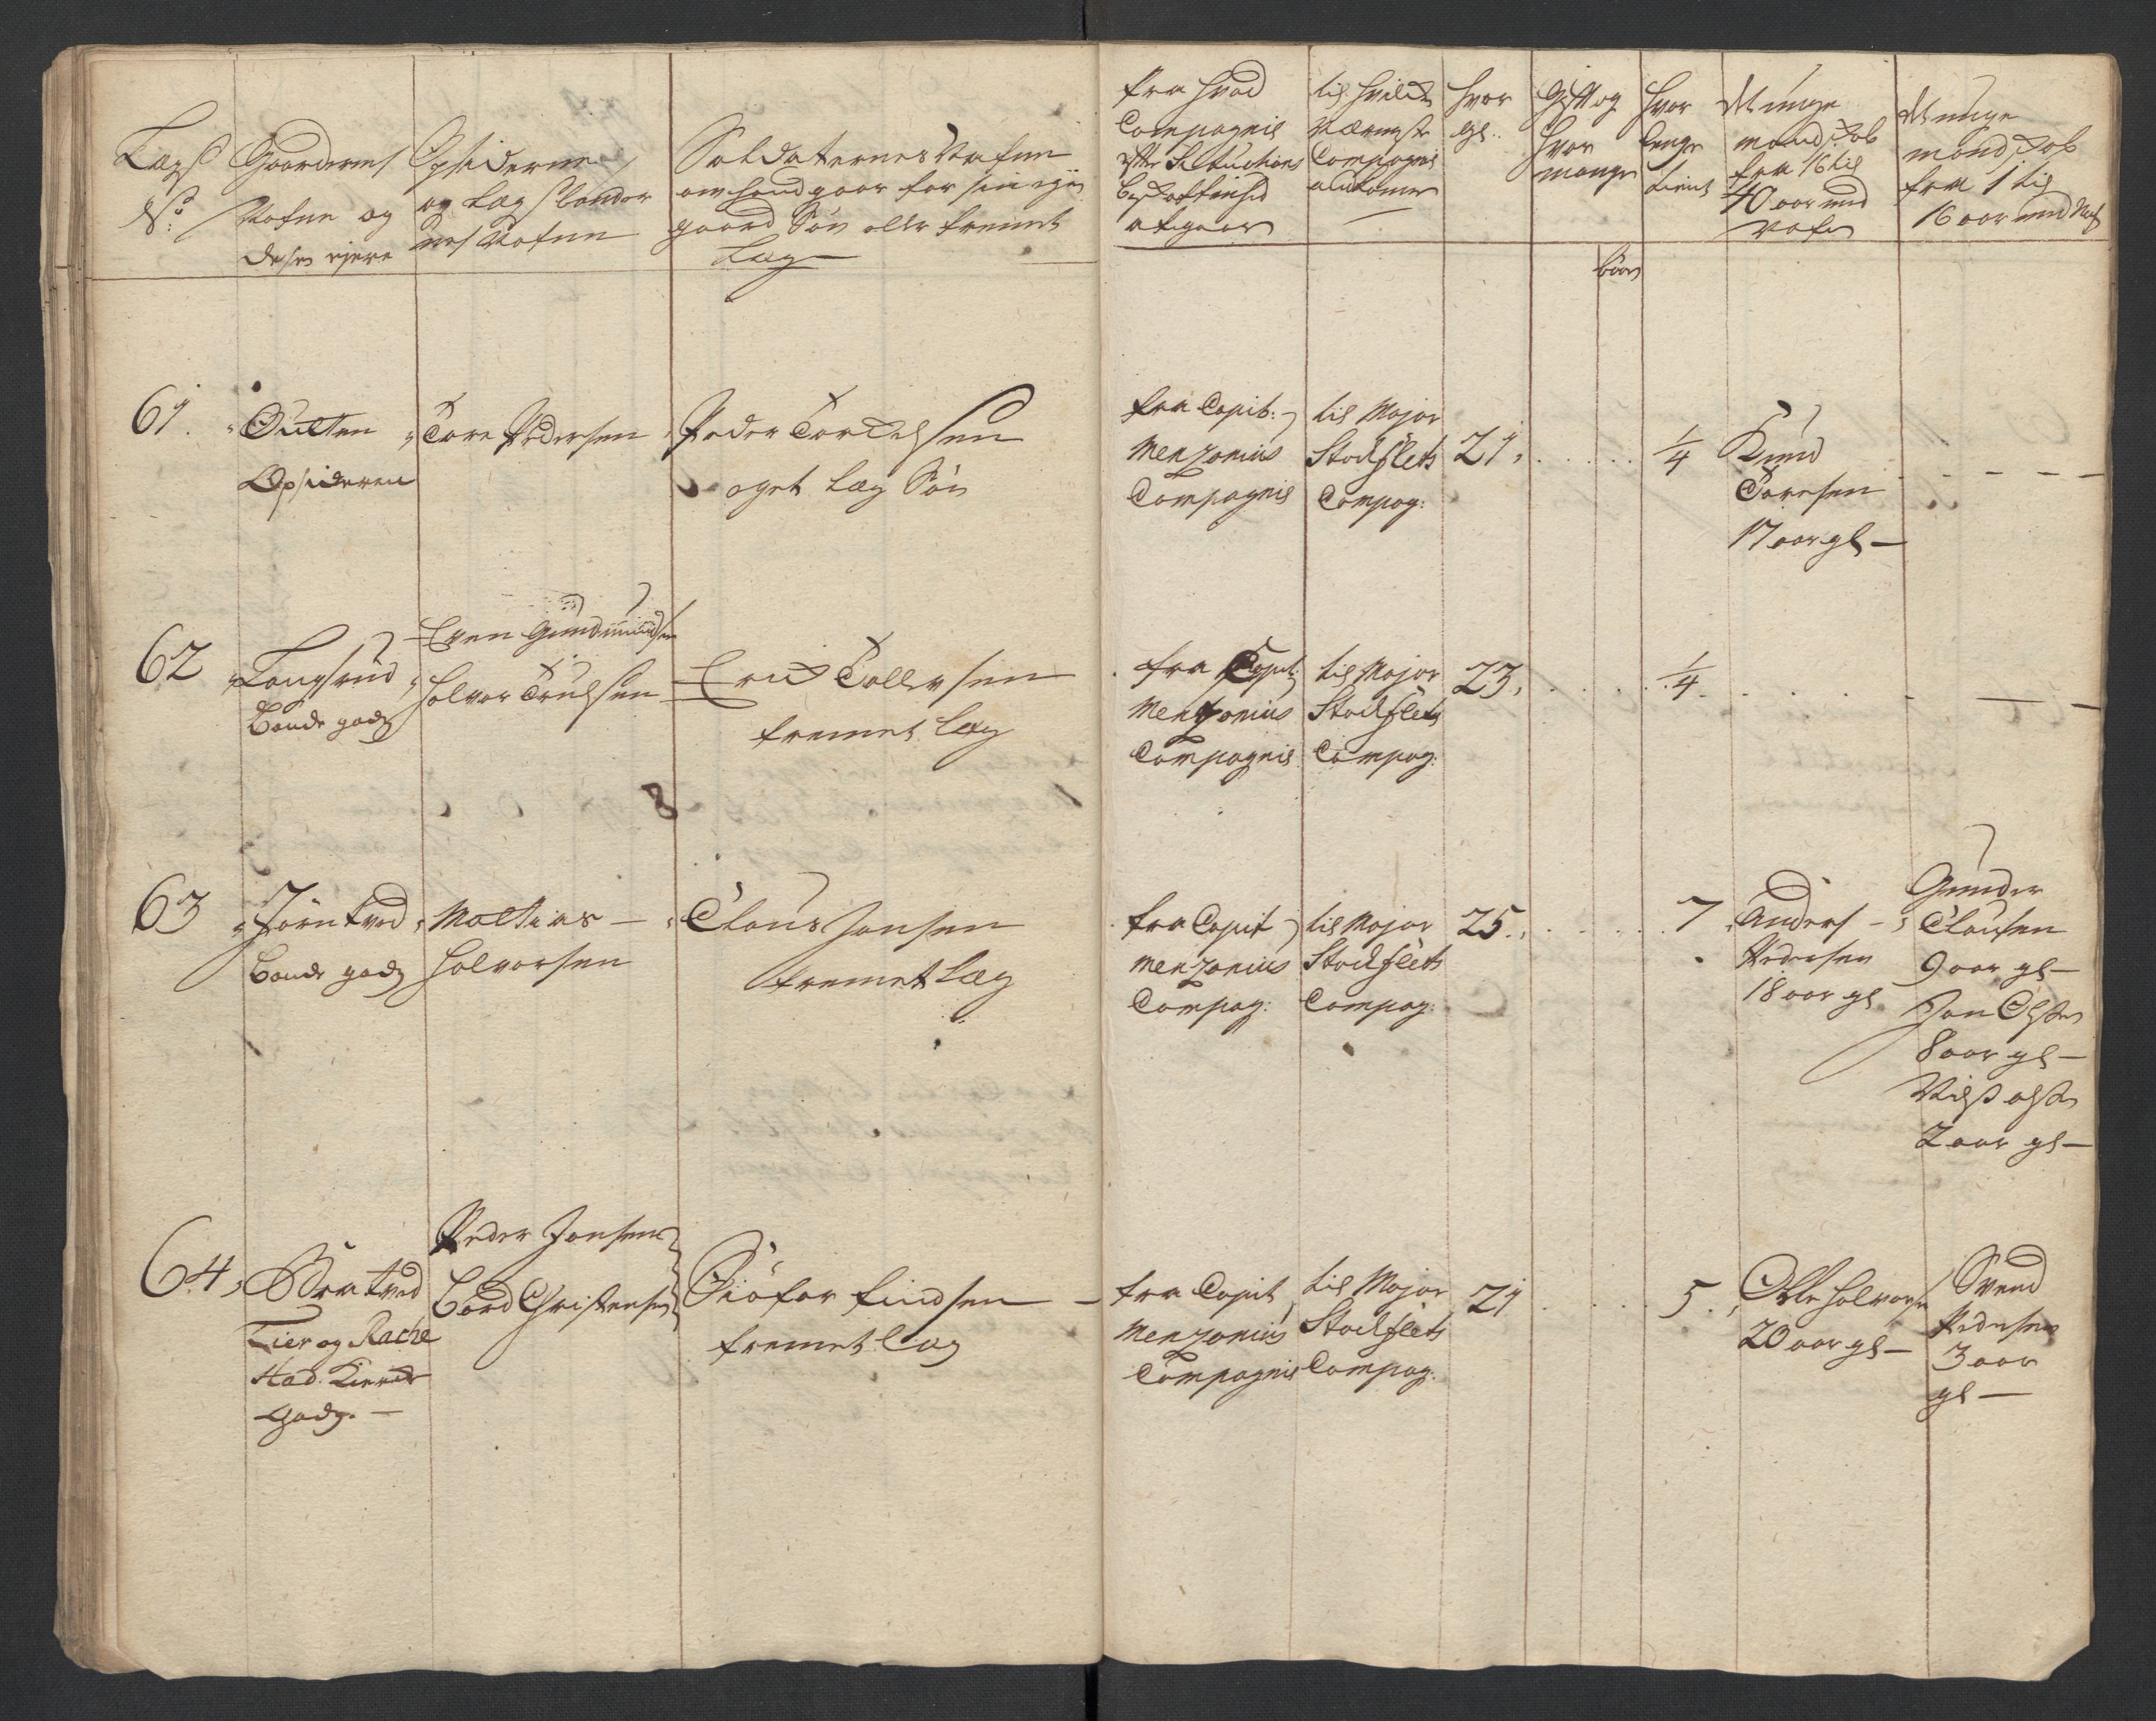 Lægs
No:
Gaardernes
Nafne og
deses ejere
Opsidderne
og Lægslender
nes Nafne
Soldaternes Nafne
om hand gaar for sin egen
gaard Søn eller fremet
Læg
fra hvad
Compagnie
efter
at gaar
til hvilcke
Compagnie
hvor
gl.
Gift og
hvor
mange
børn
hvor
lenge
tient
det unge
mandskab
fra 16 til
40 aar med
Nafn
det unge
mandskab
fra 1 til
16 aar med Nafn
61.
Opsideren
Tore Pedersen
Peder Torkelsen
eget Læg Søn
fra Capit:
Menzonius
Compagnie
til Major
Stockflets
Compag:
21.
1/4
Knud
Toresen
17 aar gl
62
Langerud
Bonde gods
Even Gundmundsen
Halvor Truelsen
Erick Tollersen
fremet Læg
fra Capit:
Mentzonius
Compagnie
til Major
Stockflets
Compag:
23.
1/4
8
63
Jørntved
Bonde gods
Mathias
Halvorsen
Claus Jansen
fremet Læg
fra Capit
Menzonius
Compag:
til Major
Stockflets
Compag:
25.
7
Anders
Pedersen
18 aar gl
Gunder
Clausen
9 aar gl
Jan Olsen
8 aar gl
Nils olsen
2 aar gl
64.
Bratved
Lier og Rache
stad Kierke
gods.
Peder Jansen
Bård Christensen
Siøfar Findsen
fremet Læg
fra Capit
Menzonius
Compagnie
til Major
Stockflets
Compag:
21
5.
Olle Halvorsen
20 aar gl
Svend
Pedersen
3 aar
gl